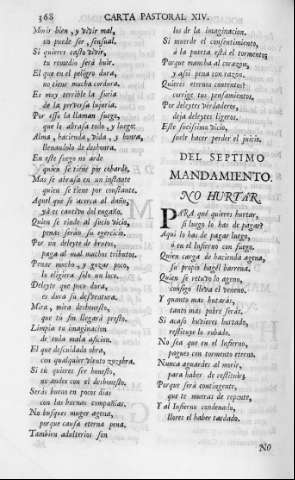 368 CARTA PASTORAL XIV.
Morir bien, y vivir mal,
no puede ser, sensual.
Si quieres casto vivir,
tu remedio será huir.
El que en el peligro dura,
no tiene mucha cordura.
Es muy terrible la furia
de la perversa luxuria.
Por esso la llaman fuego,
que lo abrasa todo, y luego:
Alma, hacienda, vida, y honra,
llenandolo de deshonra.
En este fuego no arde
quien se tiene por cobarde,
Mas se abrasa en un instante
quien se tiene por constante.
Aquel que se acerca al daño,
yá es cautivo del engaño.
Quien se rinde al sucio vicio,
penas serán su exercicio.
Por un deleyte de bruto,
paga al mal muchos tributos.
Pensar mucho, y gozar poco,
lo eligiera solo un loco.
Deleyte que poco dura,
es dura su desventura.
Mira, mira deshonesto,
que tu fin llegará presto.
Limpia tu imaginacion
de toda mala aficion.
El que descuidado obra,
con qualquier viento zozobra.
Si tú quieres ser honesto,
no andes con el deshonesto.
Serás bueno en pocos dias
con las buenas compañias.
No busques muger agena,
porque causa eterna pena.
Tambien adulterios son
los de la imaginacion.
Si muerde el consentimiento,
á la puerta está el tormento;
Porque mancha al corazon,
y assi pena con razon.
Quieres eternos contentos?
corrige tus pensamientos.
Por deleytes verdaderos,
deja deleytes ligeros.
Este feissimo vicio,
suele hacer perder el juicio.
DEL SEPTIMO
MANDAMIENTO.
NO HURTAR.
PARA qué quieres hurtar,
si luego lo has de pagar?
Aqui lo has de pagar luego,
ò en el Infierno con fuego.
Quien carga de hacienda agena,
su propio bagél barrena.
Quien se retuvo lo ageno,
consigo lleva el veneno.
Y quanto mas hurtarás,
tanto mas pobre serás.
Si acaso huvieres hurtado,
restituye lo robado.
No sea que en el Infierno,
pagues con tormento eterno.
Nunca aguardes al morir,
para haber de restituir;
Porque será contingente,
que te mueras de repente,
Y al Infierno condenado,
llores el haber tardado.
NO